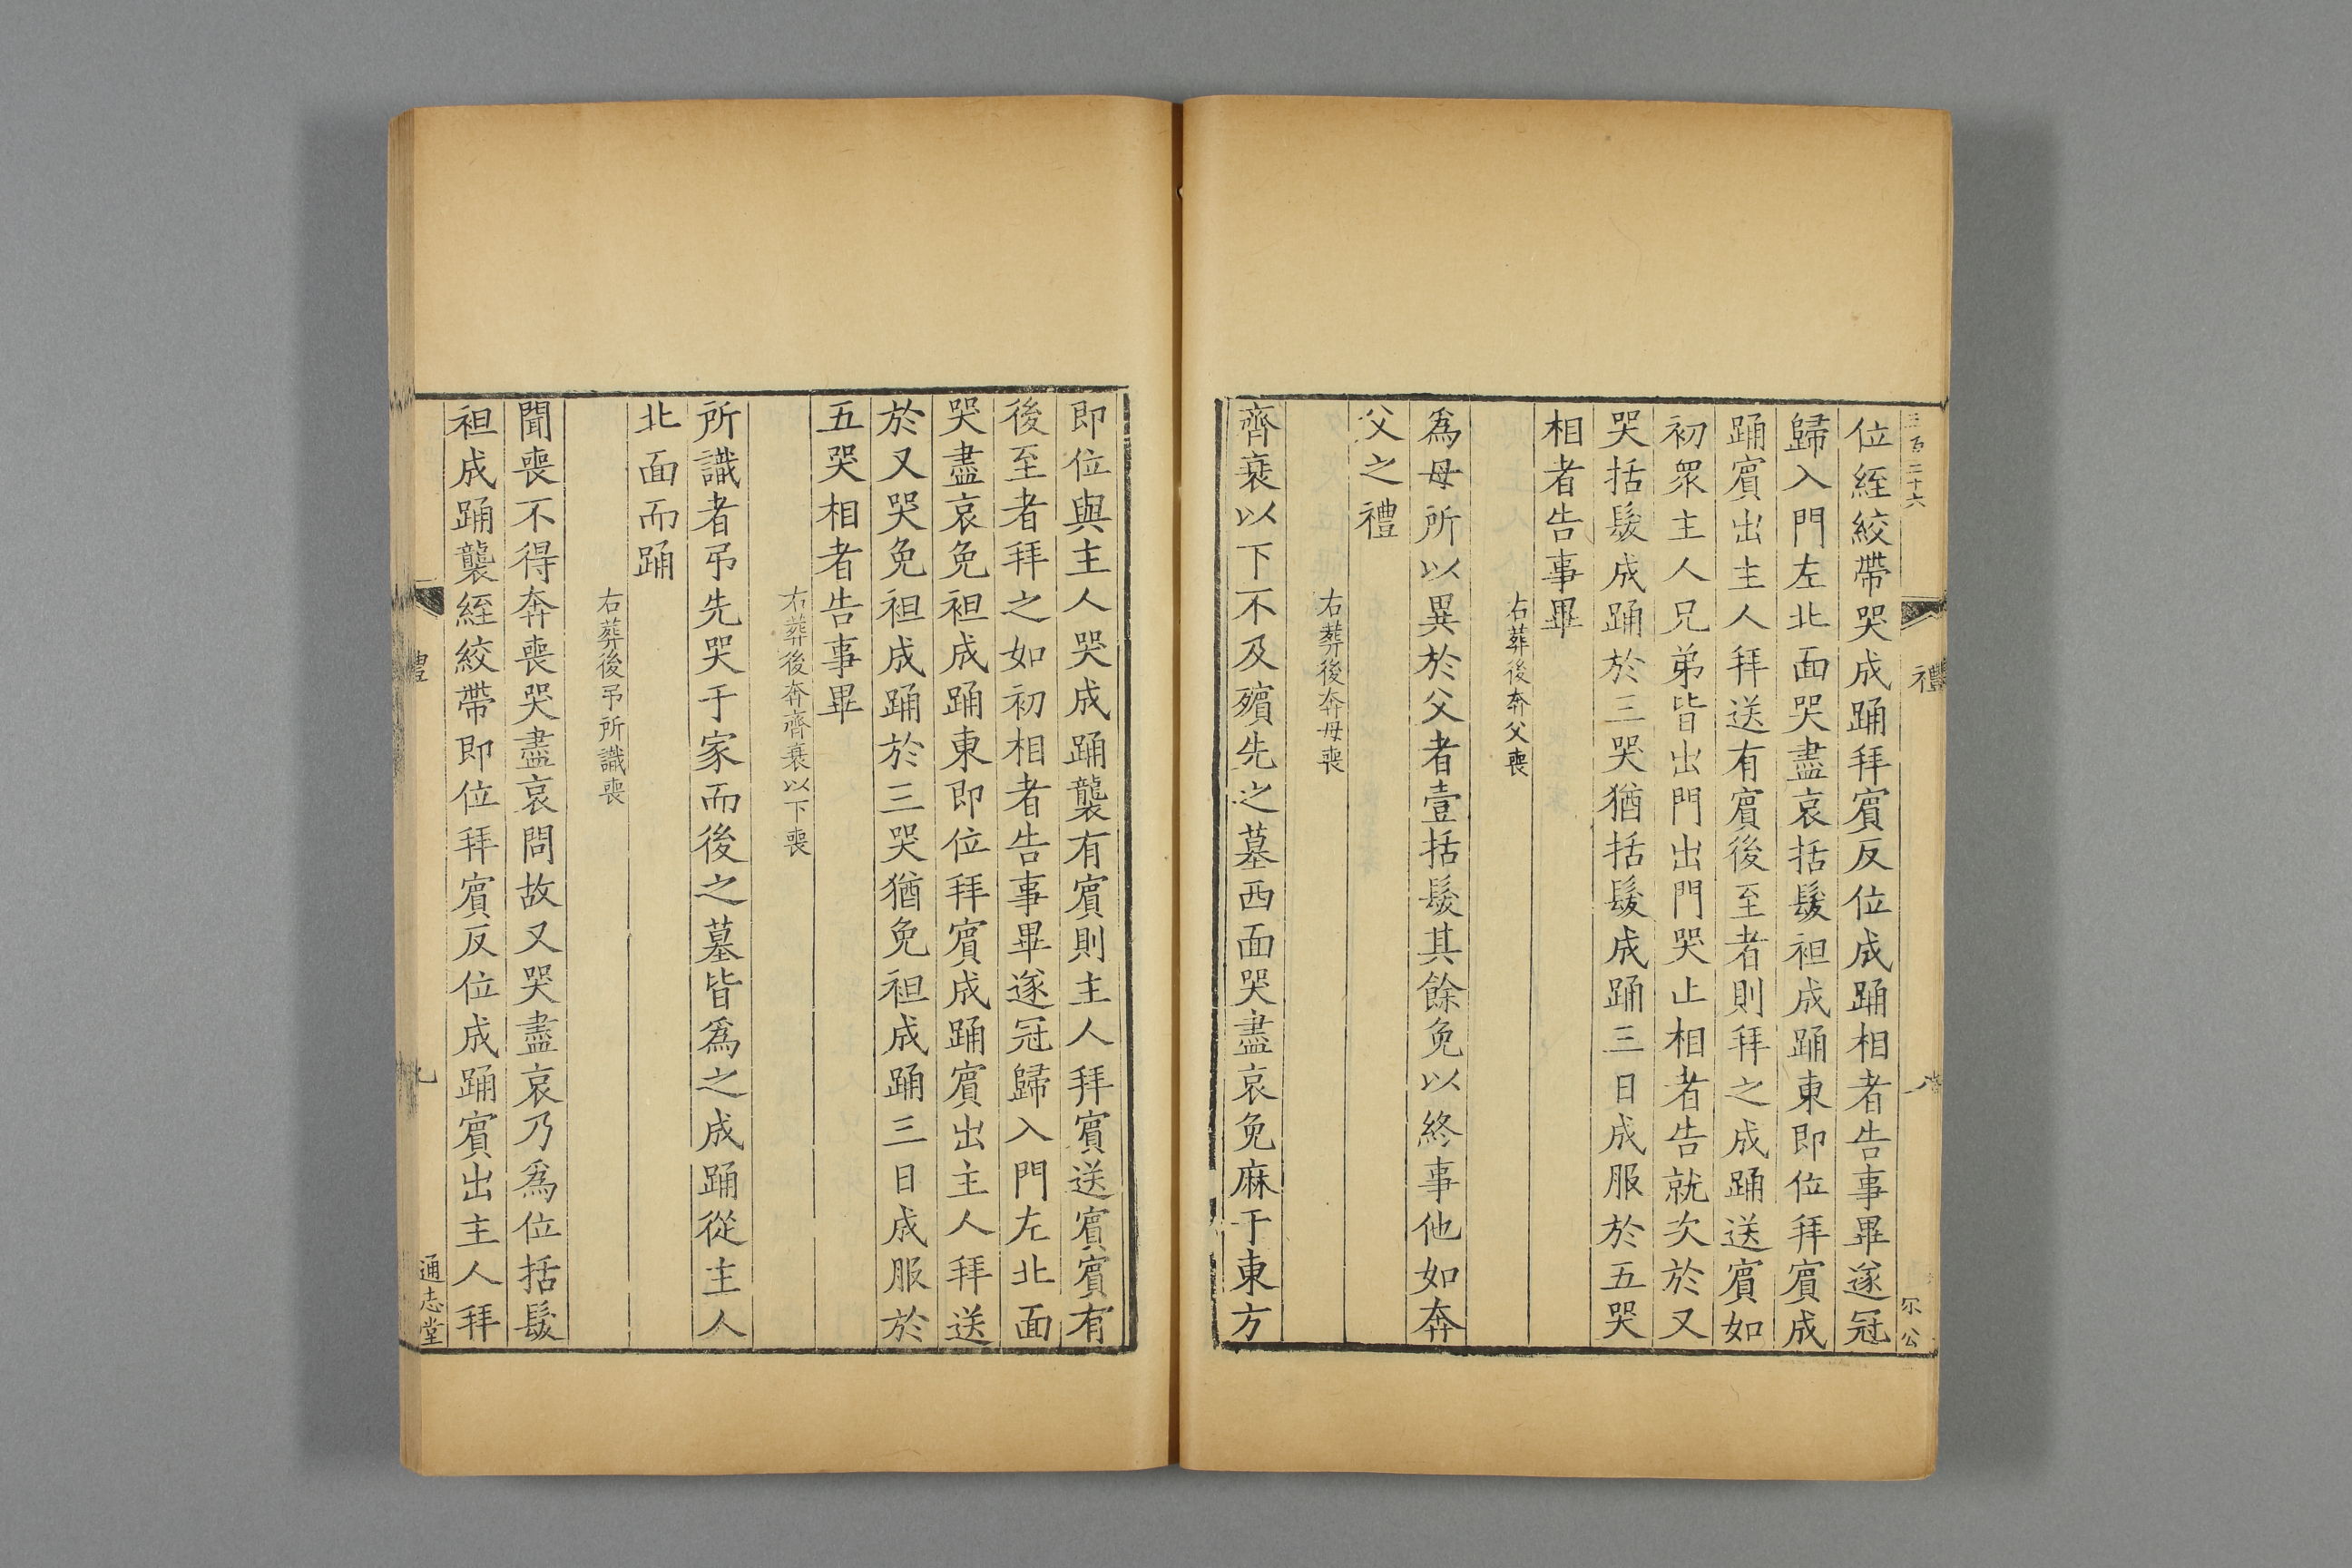 三百二十六
禮
八
位絰絞帶哭成踊拜賔反位成踊相者告事畢遂冠
歸入門左北面哭盡哀括髮袒成踊東即位拜賔成
踊賔出主人拜送有賔後至者則拜之成踊送賔如
初衆主人兄弟皆出門出門哭止相者告就次於又
哭括髮成踊於三哭猶括髮成踊三日成服於五哭
相者告事畢
右葬後奔父喪
爲母所以異於父者壹括髮其餘免以終事他如奔
父之禮
右葬後奔母喪
齊衰以下不及殯先之墓西面哭盡哀免麻于東方
即位與主人哭成踊襲有賔則主人拜賔送賔賔有
後至者拜之如初相者告事畢遂冠歸入門左北面
哭盡哀免袒成踊東即位拜賔成踊賔出主人拜送
於又哭免袒成踊於三哭猶免袒成踊三日成服於
五哭相者告事畢
右葬後奔齊衰以下喪
所識者弔先哭于家而後之墓皆爲之成踊從主人
北面而踊
右葬後弔所識喪
聞喪不得奔喪哭盡哀問故又哭盡哀乃爲位括髮
袒成踊襲絰絞帶即位拜賔反位成踊賔出主人拜
通志堂